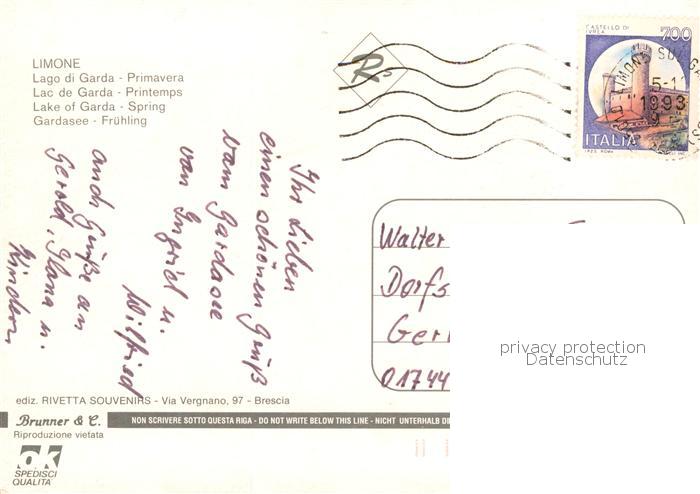 LIMONE
Lago di Garda - Primavera
Lac de Garda - Printemps
Lake of Garda - Spring
Gardasee - Frühling
Rs
CASTELLO DI
IVREA
700
ITALIA
1993
Ihr Lieben
einen schönen Gruß
vom Gardasee
von Ingrid u.
Wilfried
auch Grüße an
Gerold, Ilana u.
Kindern
Walter
Dorfs
Ger
01744
privacy protection
Datenschutz
ediz. RIVETTA SOUVENIRS - Via Vergnano, 97 - Brescia
Brunner & C.
NON SCRIVERE SOTTO QUESTA RIGA - DO NOT WRITE BELOW THIS LINE - NICHT UNTERHALB DI
Riproduzione vietata
ok
SPEDISCI
QUALITA'